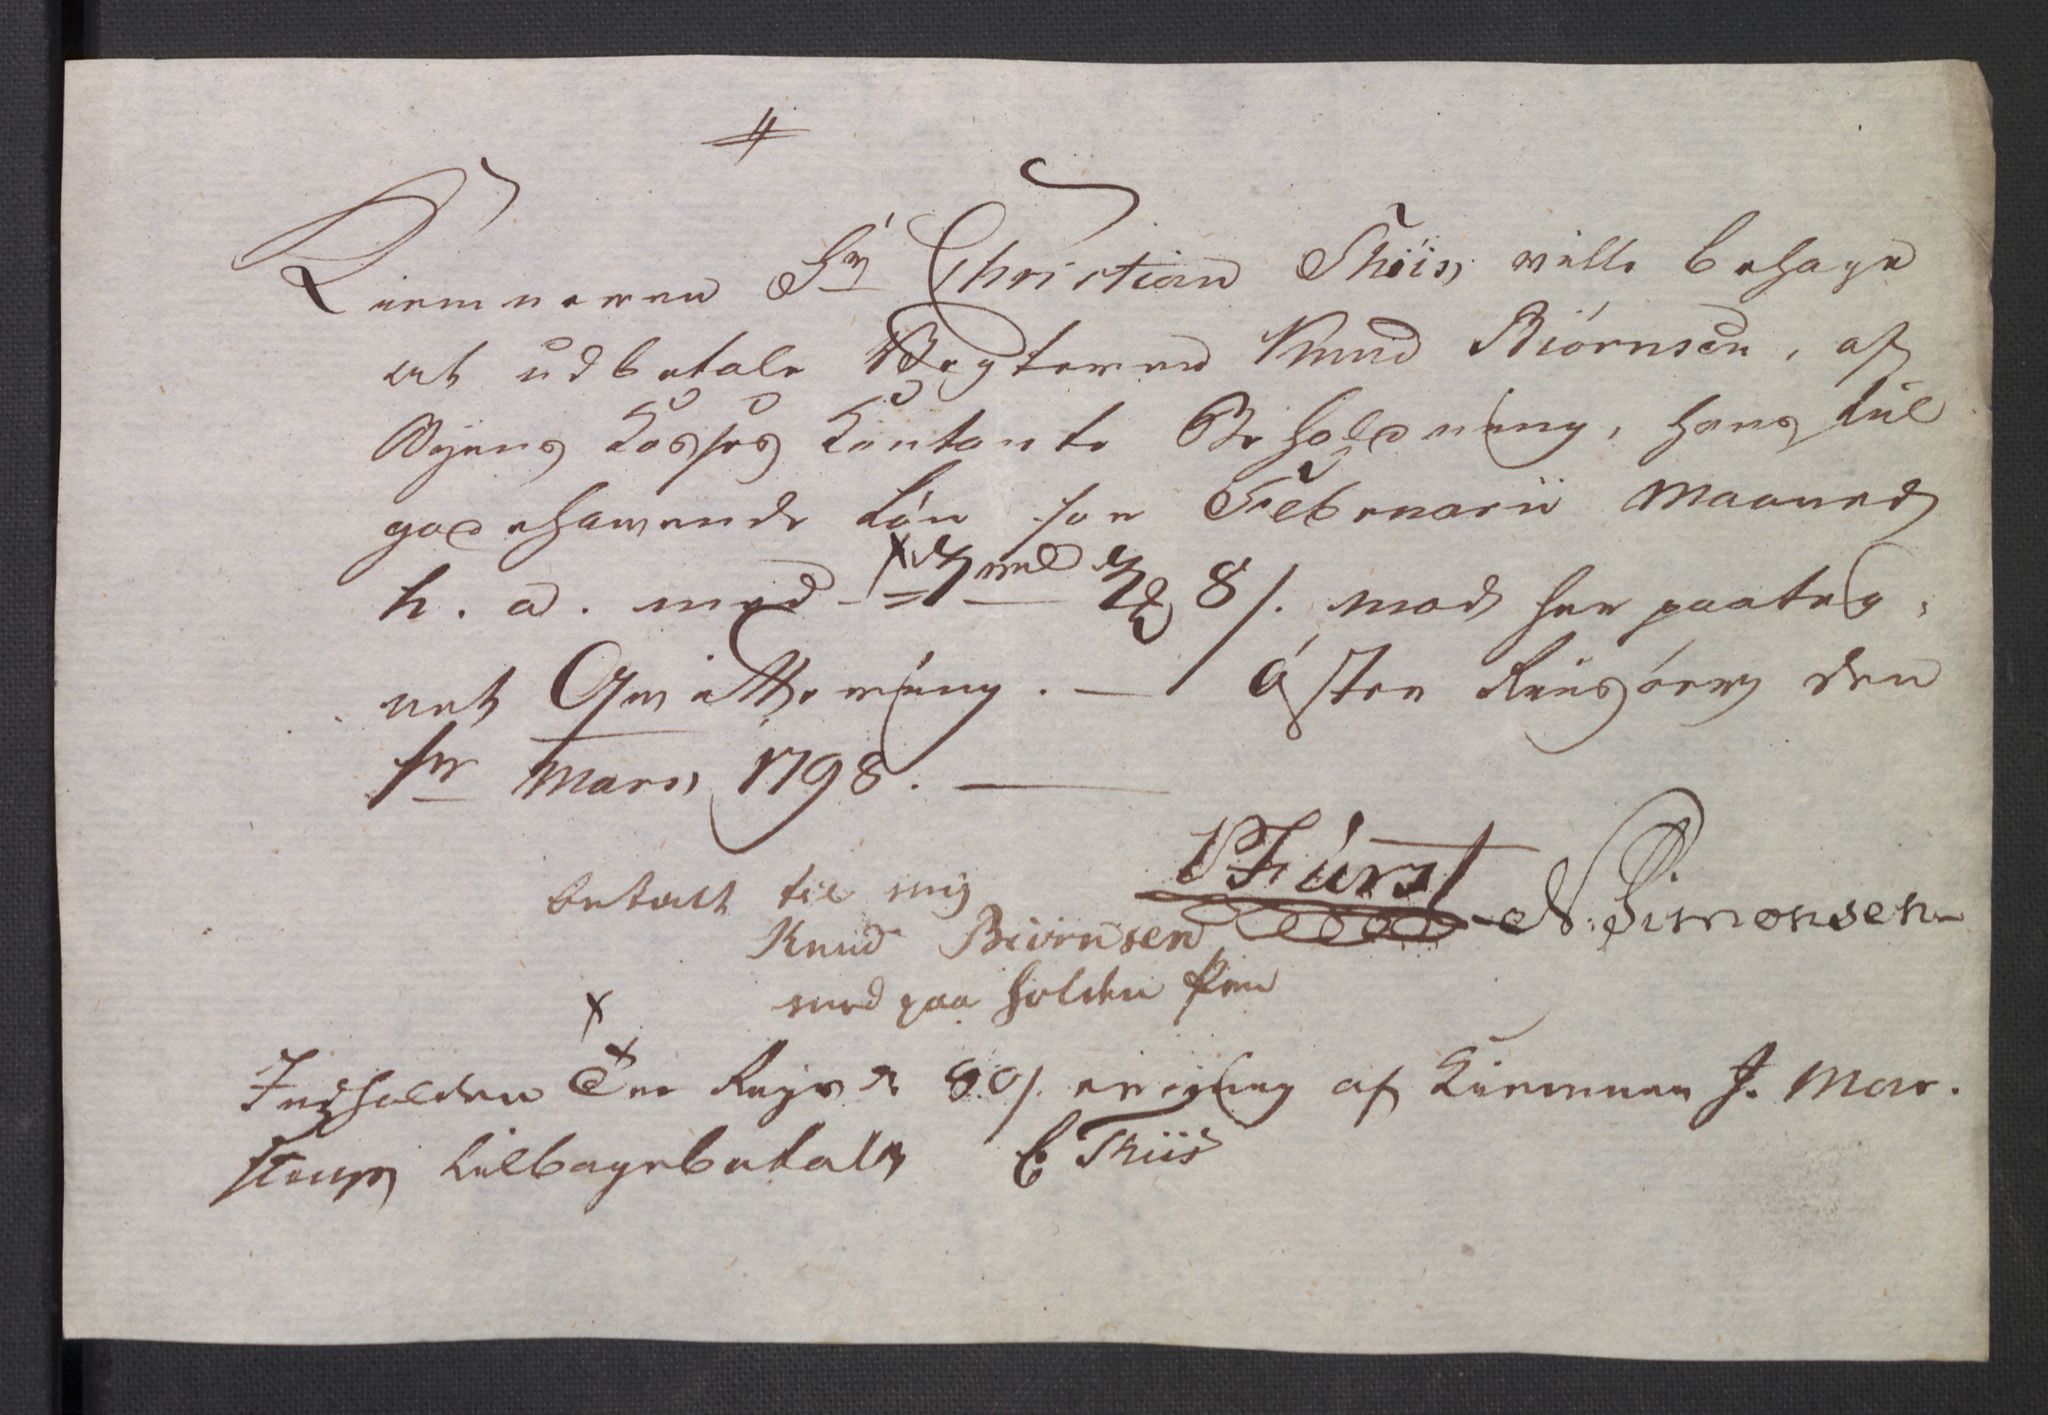 Kiemneren Hr Christian Thiis, ville behage
at udbetale Vegteren Knud Biørnsen, af
Byens Kasses Contante Beholdning, hans til
godehavende Løn for Februarii Maaned
h. a. med 8 s. mod her paateg,
net Qvittering. — Øster Riisøer den
Mars 1798. —
VFürst N: Simonsen
betalt til mig
Knud Biørnsen
med paa holden Pen
x
Indholden er rigtig af Kiemner J. Mar.
strup tilbagebetalt C Thiis